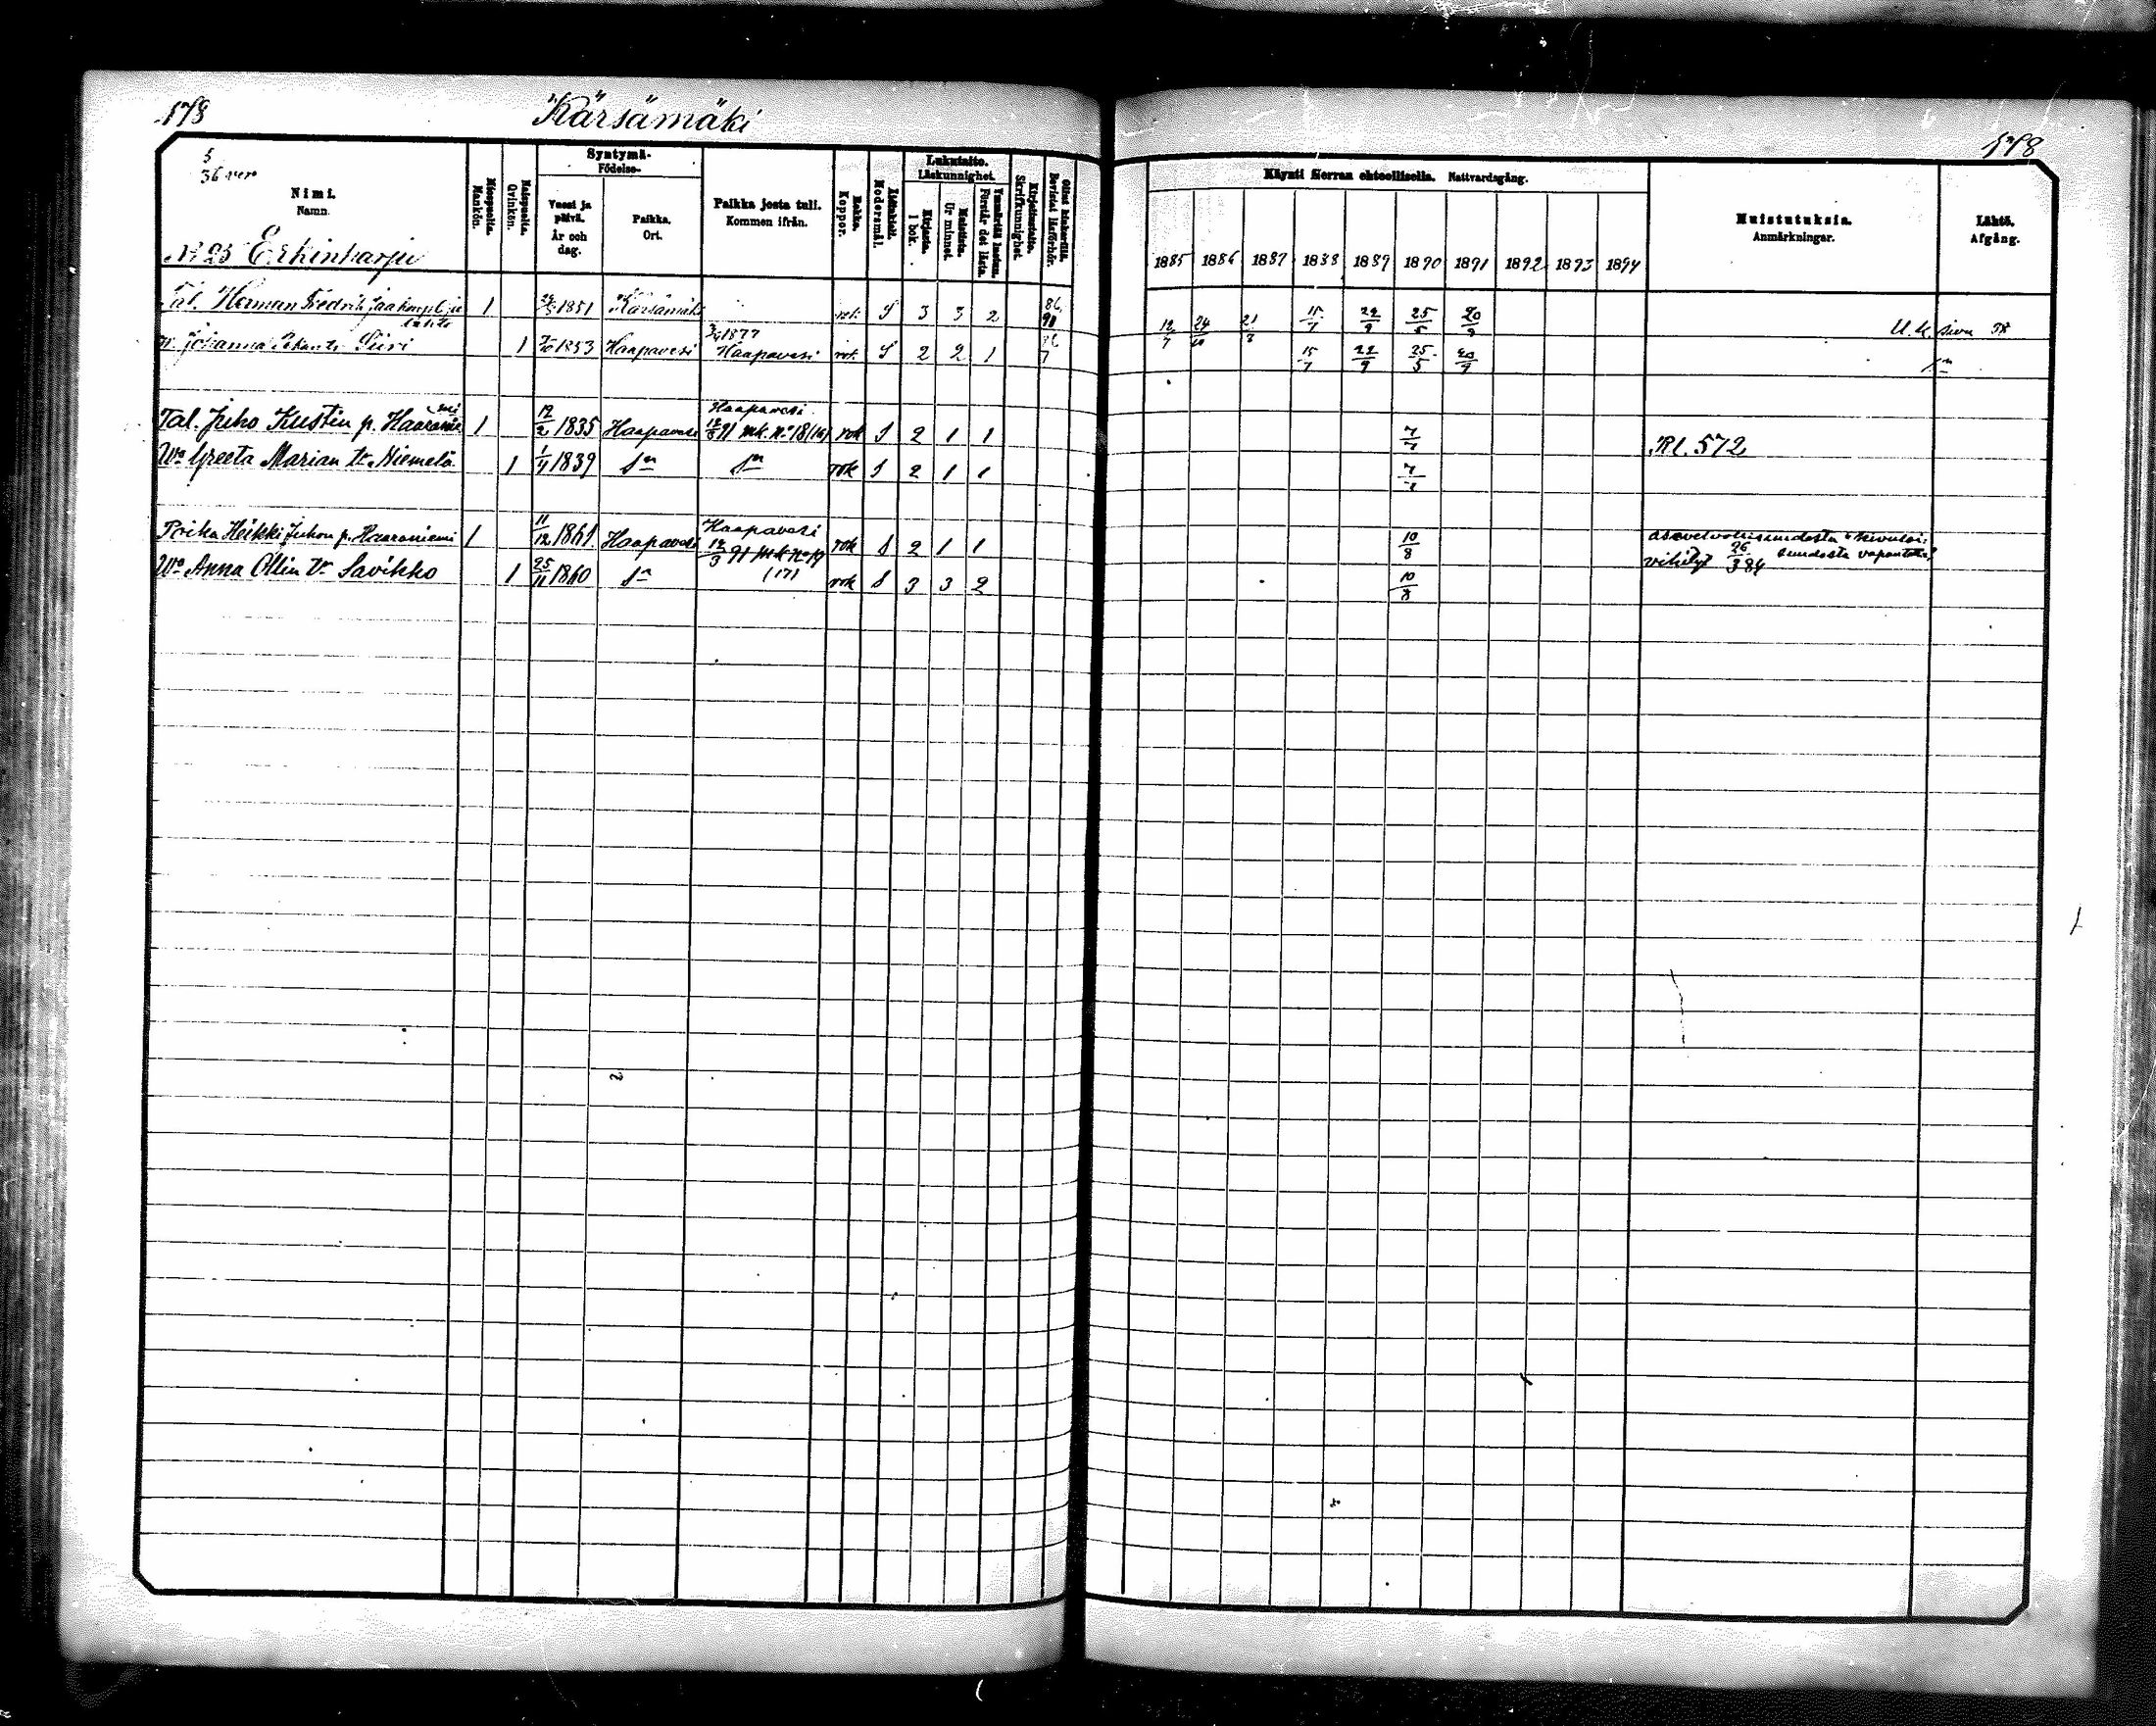 178
Kärsämäki
178
5
36 vero
Nimi.
Namn.
No 25 Erkinharju
Miespuolia.
Mankön.
Naispuolia.
Qvinkön.
Syntymä-
Födelse-
Vuosi ja päivä.
År och dag.
Paikka.
Ort.
Paikka josta tuli.
Kommen ifrån.
Rokko.
Koppor.
Äidinkieli.
Modersmål.
Lukutaito.
Läskunnighet.
Kirjasta.
I bok.
Muistista.
Ur minnet.
Ymmärtää luetun.
Förstår det lästa.
Kirjoitustaito.
Skrifkunnighet.
Ollut lukukerilla.
Bevistat läsförhör.
Käynti Herran ehtoollisella. Nattvardsgång.
1885 1886 1887 1888 1889 1890 1891 1892 1893 1894
Muistutuksia.
Anmärkningar.
Lähtö.
Afgång.
Tal. Herman Fredrik Jaakonp. 1 1851 Kärsämäki rok. S 3 3 2 86 90 12/7 24/10 21/8 15/7 22/9 25/5 20/9 U.K. sivu
3/4 1877
w. Johanna Siiri 1 1853 Haapavesi Haapavesi rok. S 2 2 1 15/7 22/9 25/5 20/9 Sn
Haapavesi
Tal. Juho Kustin p. Haaraniemi 1 12/2 1835 Haapavesi 12/3 91 mk. No 18 (16) rok S 2 1 1 7/7 Rl. 572
Wo Greeta Marian tr Niemelä 1 1/4 1839 Sn Sn rok S 2 1 1 7/7
Haapavesi
Poika Heikki Juhon p. Haaraniemi 1 11/12 1861 Haapavesi 12/3 91 mk No 19 rok S 2 1 1 10/8 asevelvollisuudesta
Wo Anna Ollin tr Savikko 1 25/11 1860 Sn (17) rok S 3 3 2 10/8 vihityt 26/3 84